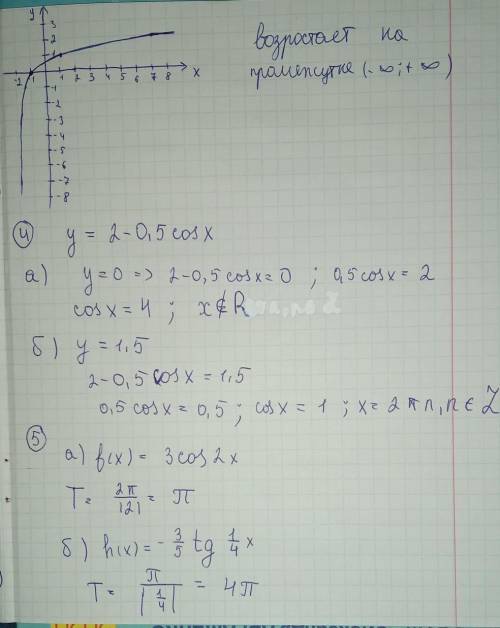 y
3
2
1
-2 -1 1 2 3 4 5 6 7 8 x
-1
-2
-3
-4
-5
-6
-7
-8
возростает на
промежутке (-∞; +∞)
4 y = 2-0,5cosx
а) y=0 => 2-0,5cosx=0 ; 0,5cosx = 2
cosx = 4 ; x∉R
б) y = 1,5
2-0,5cosx = 1,5
0,5cosx = 0,5 ; cosx = 1 ; x = 2πn, n ∈ Z
5
а) f(x) = 3cos2x
T = 2π/|2| = π
б) h(x) = -3/5 tg 1/4 x
T = π/|1/4| = 4π